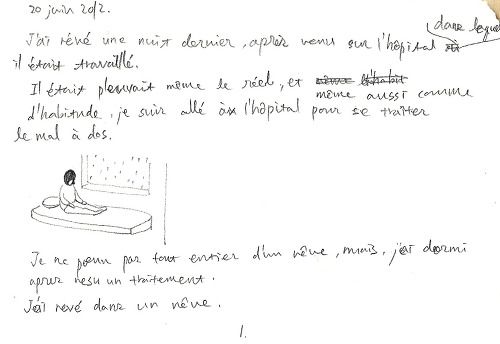 20 juin 2012.
dans lequel
J'ai rêvé une nuit dernier, après venu sur l'hôpital
il était travaillé.
Il était pleuvait même le réel, et même aussi comme
d'habitude, je suis allé à l'hôpital pour se traîter
le mal à dos.
Je ne peux pas tout entier d'un rêve, mais, j'ai dormi
après un traitement.
J'ai revé dans un rêve.
1.